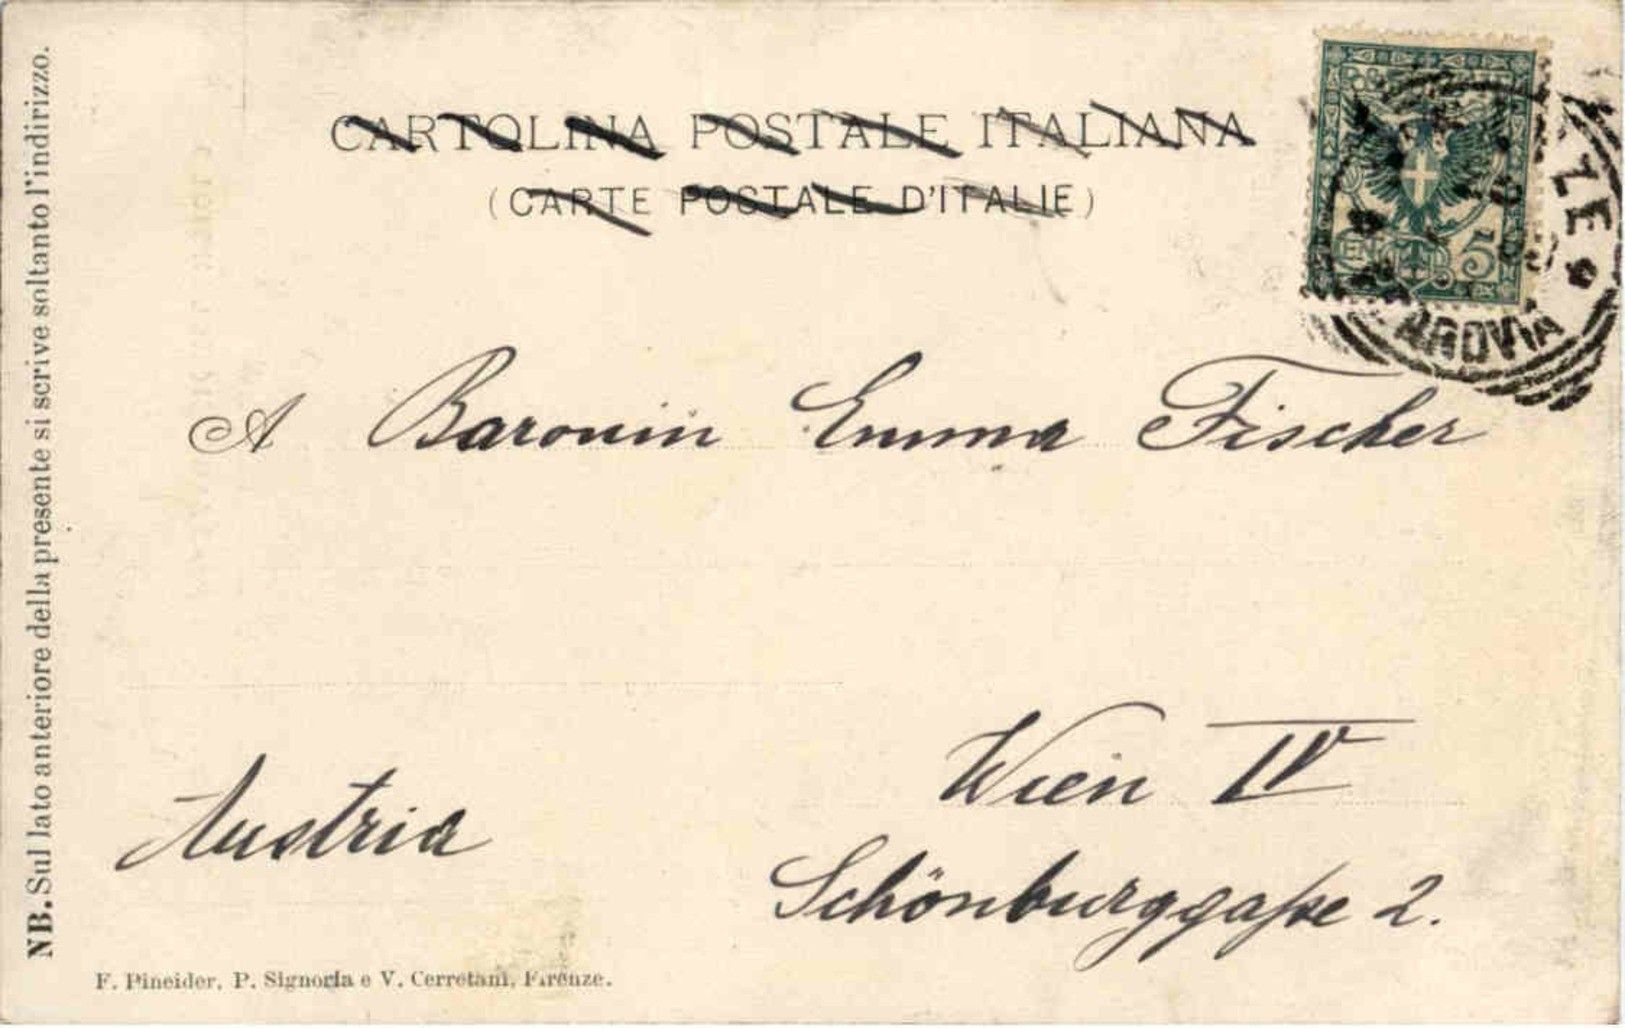 CARTOLINA POSTALE ITALIANA
(CARTE POSTALE D'ITALIE)
5
ZE
ROVIA
A Baronin Emma Fischer
Wien IV
Austria
Schönburggasse 2.
NB. Sul lato anteriore della presente si scrive soltanto l'indirizzo.
F. Pineider, P. Signoria e V. Cerretani, Firenze.